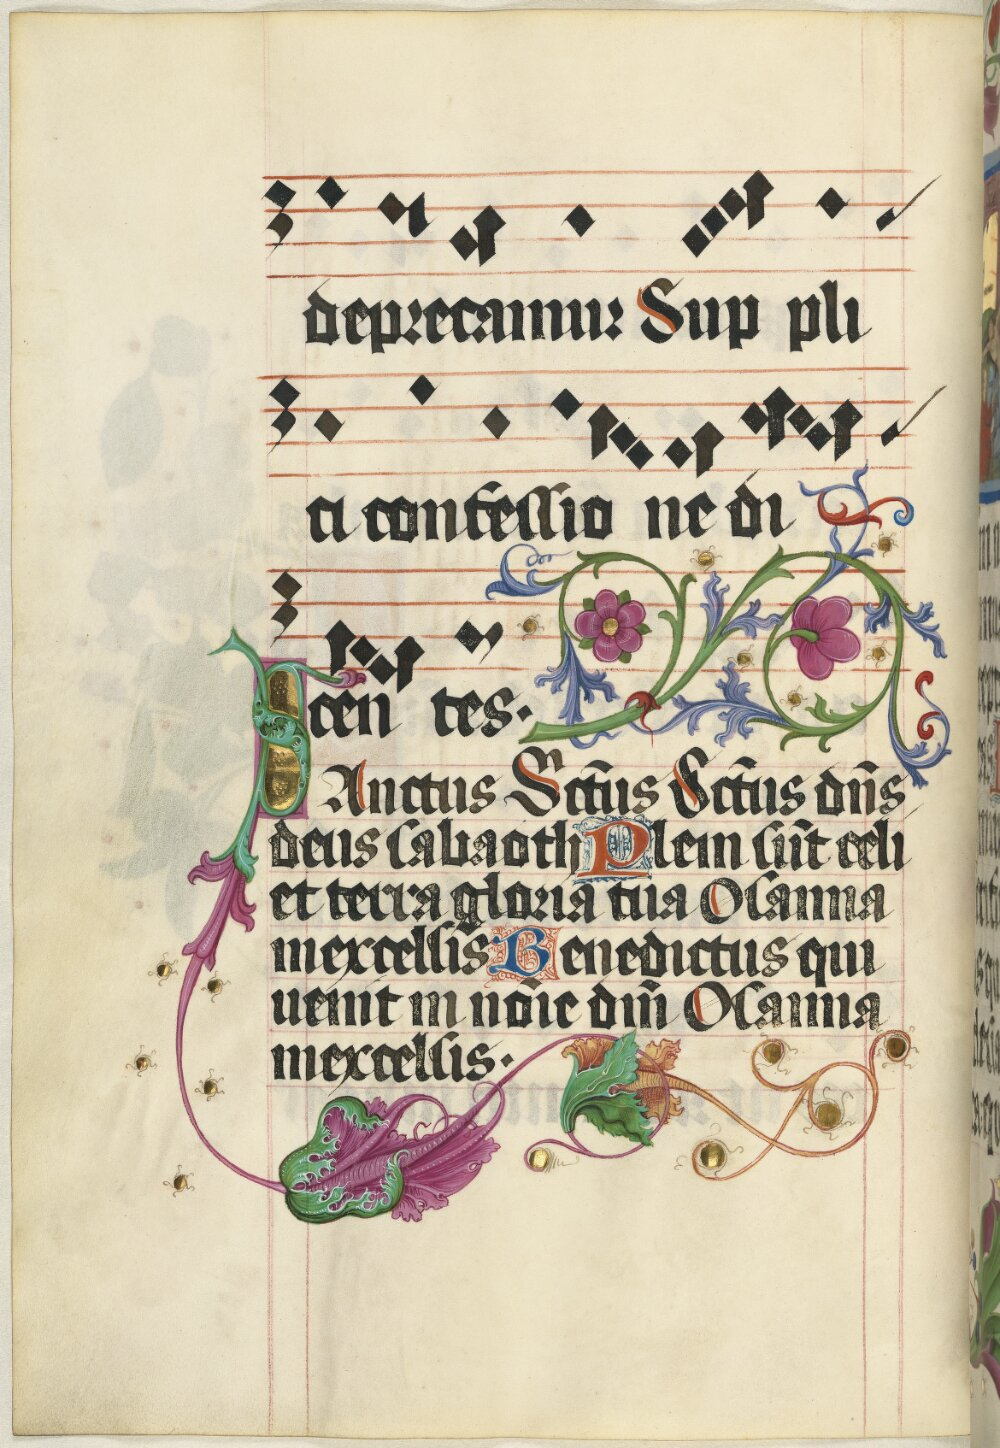 deprecamur Sup pli
ci confessio ne di
cen tes.
SAnctus Sctūs Sctūs dn̄s
deus sabaoth Pleni sūt celi
et terra gloria tua Osanna
inexcelsis Benedictus qui
uenit in noīe dnī Osanna
inexcelsis.